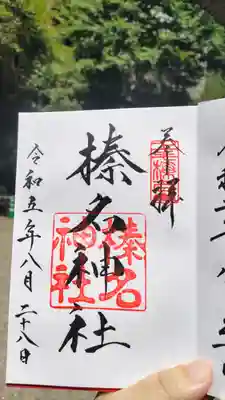 奉拝
榛名神社
榛名
神社
令和五年八月二十八日
令和五